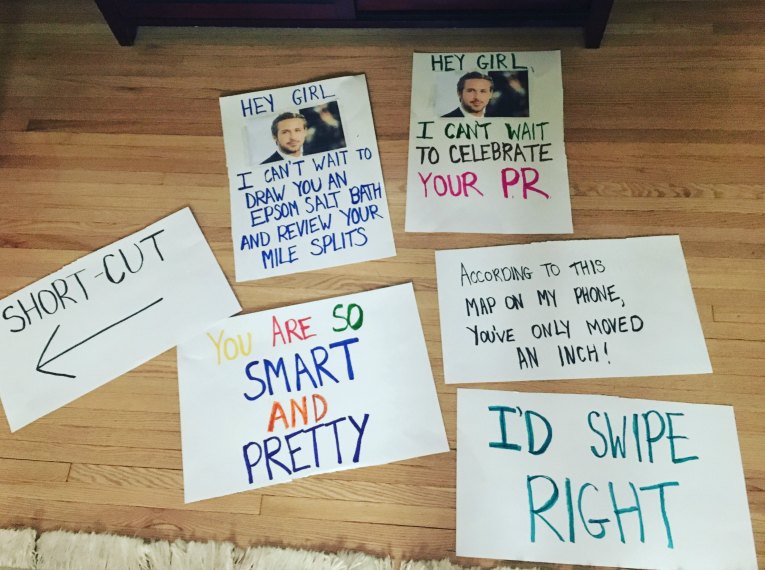 HEY GIRL
I CAN'T WAIT TO
DRAW YOU AN
EPSOM SALT BATH
AND REVIEW YOUR
MILE SPLITS
HEY GIRL,
I CANT WAIT
TO CELEBRATE
YOUR P.R.
SHORT-CUT
YOU ARE SO
SMART
AND
PRETTY
ACCORDING TO THIS
MAP ON MY PHONE,
YOU'VE ONLY MOVED
AN INCH!
I'D SWIPE
RIGHT